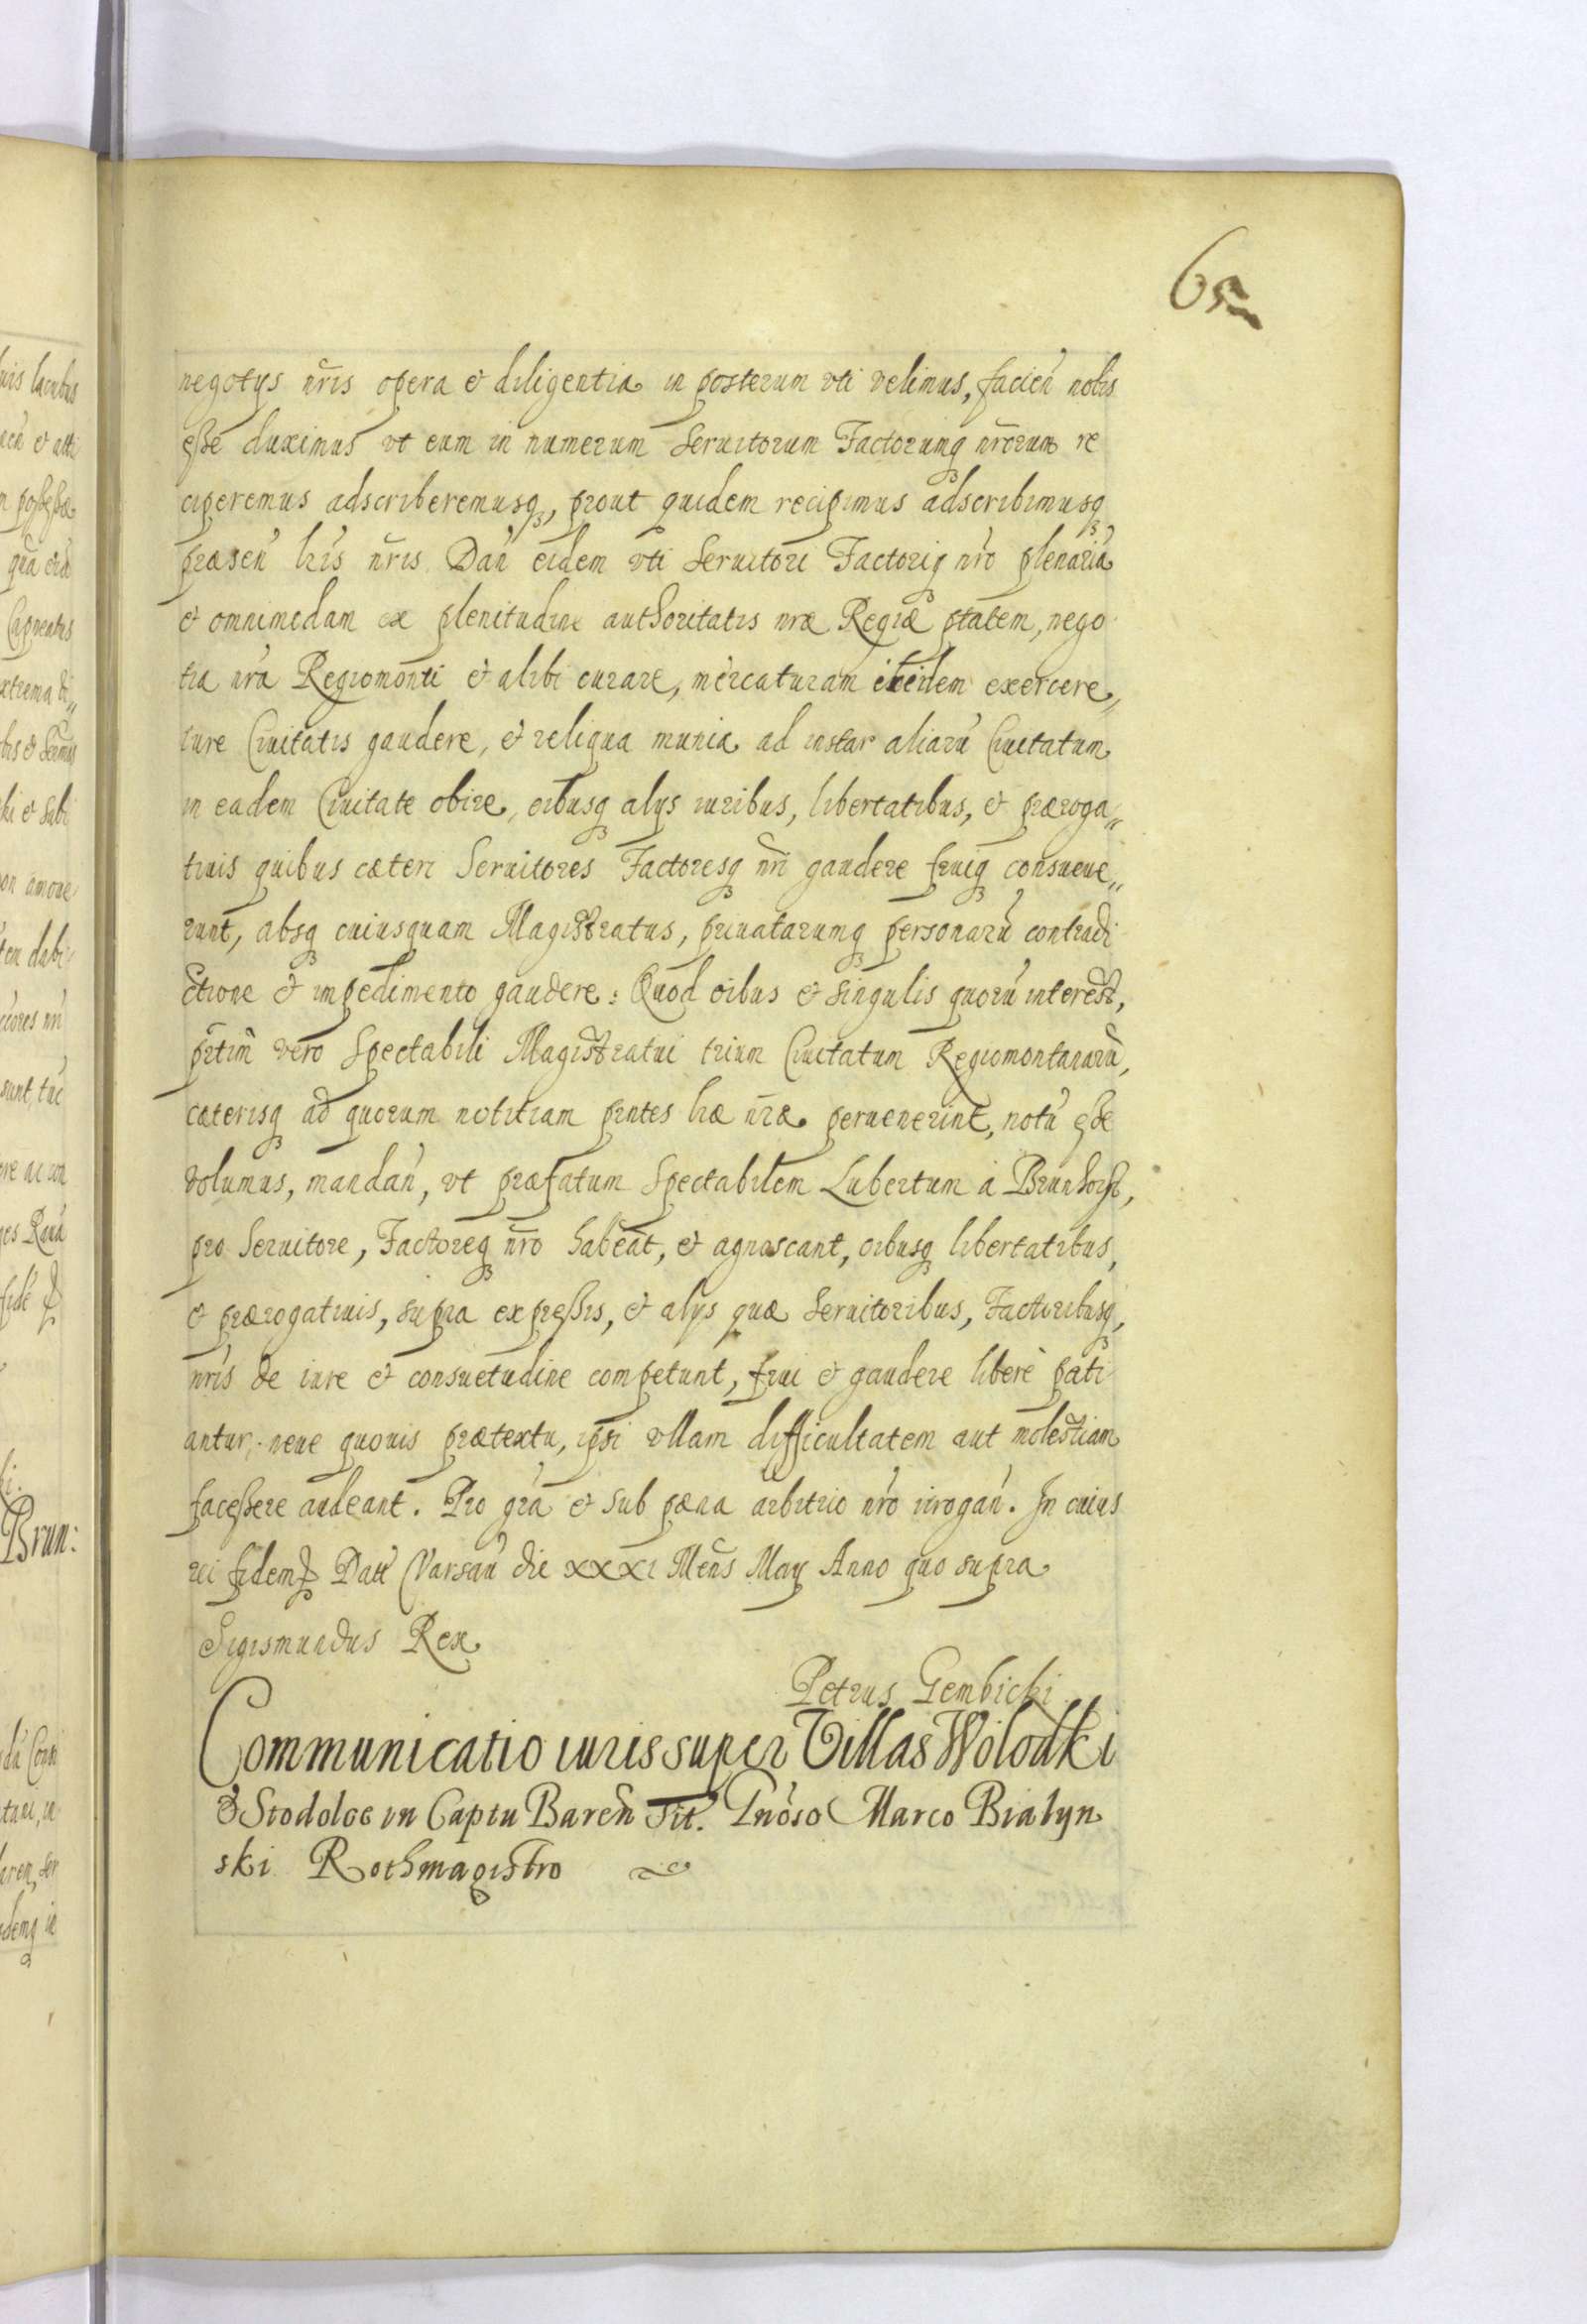 65
negotys nr̃is opera & diligentia in posterum vti velimus, facień nobis
eße duximus vt eum in numerum Seruitorum Factorumq nr̃orum re
ciperemus adscriberemusq, prout quidem recipimus adscribimusq
præseń lr̃is nr̃is Dań eidem vti Seruitori Factoriq nr̃o plenariã
& omnimodam ex plenitudine authoritatis nræ Regiæ ptatem, nego
tia nr̃a Regiomonti & alibi curare, mercaturam itidem exercere„
iure Ciuitatis gaudere, & reliqua munia ad instar aliarũ Ciuitatum
in eadem Ciuitate obire, oibusq alys iuribus, libertatibus, & præroga„
tiuis quibus cæteri Seruitores Factoresq nr̃i gaudere fruiq consueue„
runt, absq cuiusquam Magistratus, priuatarumq personarũ contradi
ctione & impedimento gaudere: Quod oibus & singulis quorũ interest,
prtim̃ vero Spectabili Magistratui trium Ciuitatum Regiomontanarũ,
cæterisq ad quorum notitiam pn̄tes lr̃æ nr̃æ peruenerint, notũ eße
volumus, mandań, vt præfatum Spectabilem Lubertum à Brunhorst,
pro Seruitore, Factoreq nr̃o habeat, & agnoscant, oibusq libertatibus,
& prærogatiuis, supra expreßis, & alys quæ Seruitoribus, Factoribusq,
nr̃is de iure & consuetudine competunt, frui & gaudere liberè pati
antur, neue quouis prætextu, ipsi vllam difficultatem aut molestiam
faceßere audeant. Pro gr̃a & sub pæna arbitrio nr̃o irrogań. In cuius
rei fidem Datt Varsaũ die xxxi Meñs May Anno quo supra
Sigismundus Rex
Petrus Gembicki
Communicatio iuris super Villas Wolodki
& Stodolce in Captu Bareñ Sit. Gnòso Marco Bialyn
ski Rothmagistro